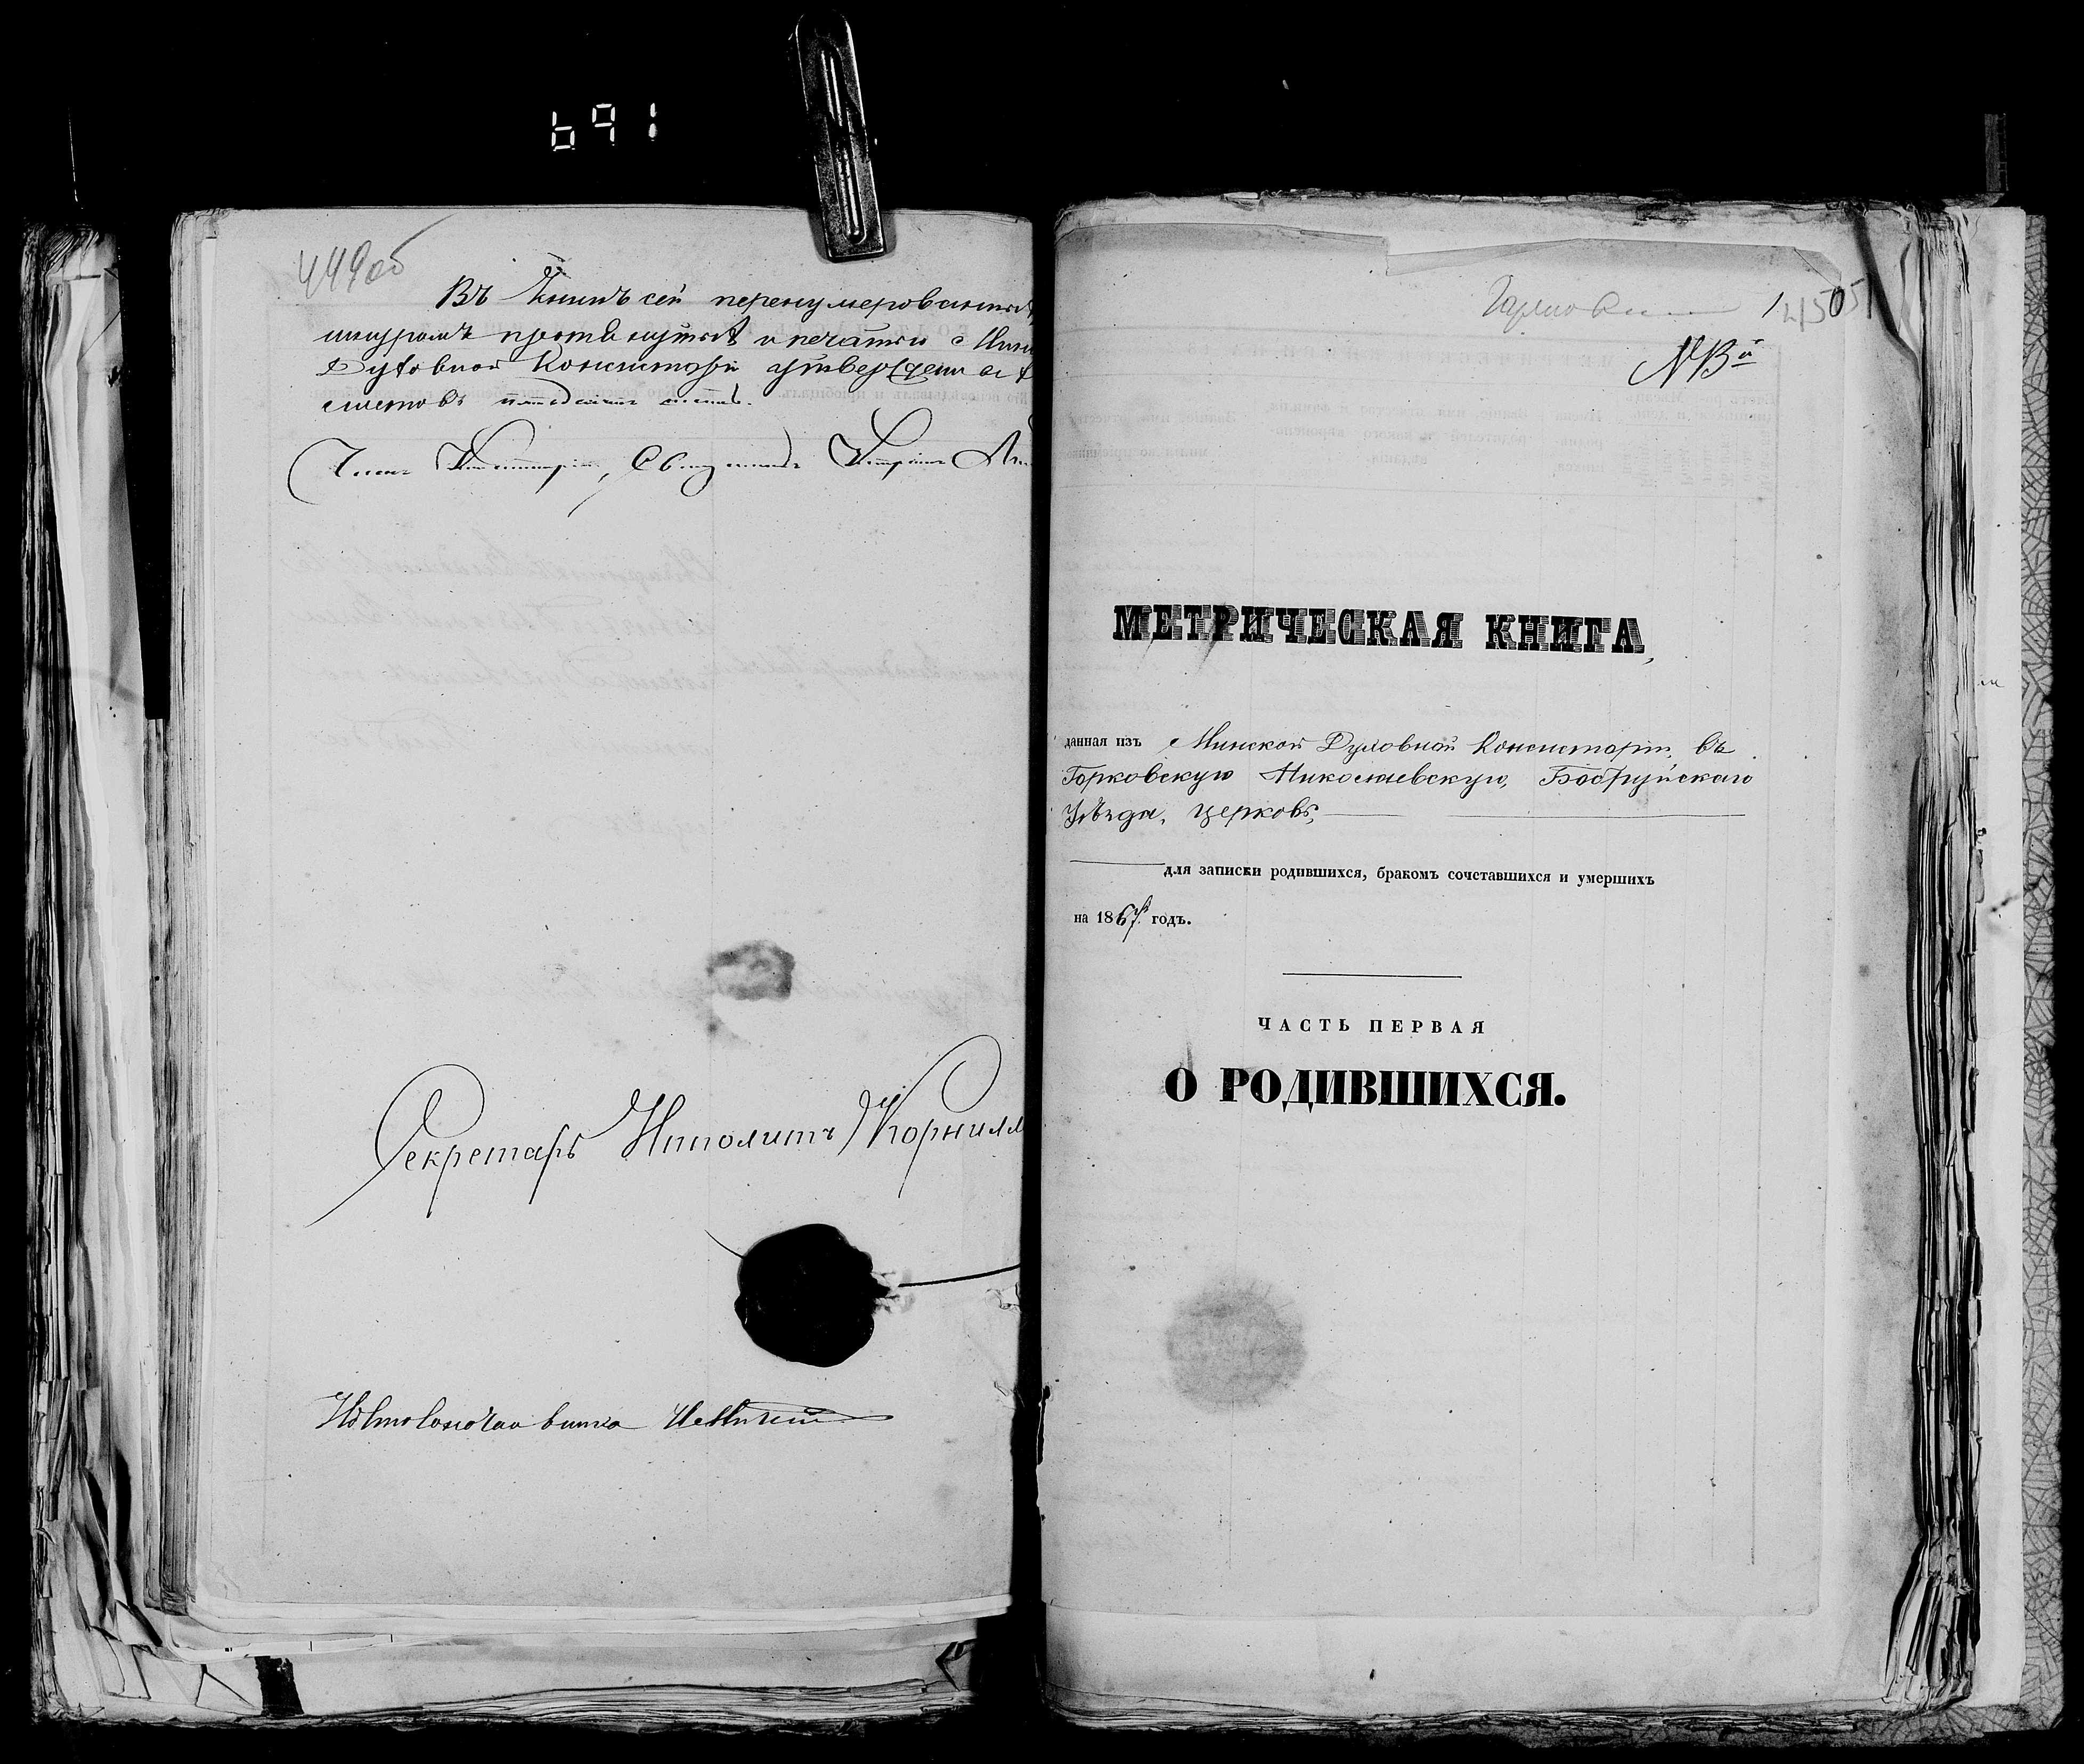 691
449об
Въ Книгѣ сей перенумерованныхъ,
шнуромъ протянутыхъ и печатью Мин
Духовной Консисторіи утвержденныхъ
листовъ пятьдесятъ
Членъ Консисторіи, Священникъ
Секретарь Ипполитъ Корнил
450
№ 13й
МЕТРИЧЕСКАЯ КНИГА,
данная изъ Минской Духовной Консисторіи, въ
Горковскую Николаевскую, Бобруйскаго
Уѣзда, церковь,
для записки родившихся, бракомъ сочетавшихся и умершихъ
на 1867 годъ.
ЧАСТЬ ПЕРВАЯ
О РОДИВШИХСЯ.